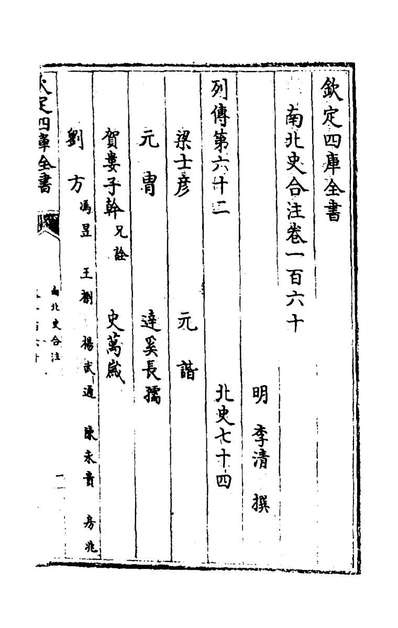 欽定四庫全書
南北史合注卷一百六十
明 李清 撰
列傳第六十二 北史七十四
梁士彦 元諧
元胄 達奚長孺
賀婁子幹兄詮 史萬歲
劉方 馮昱 王 楊武通 陳永貴 房兆
欽定四庫全書 南北史合注 卷一百六十 一